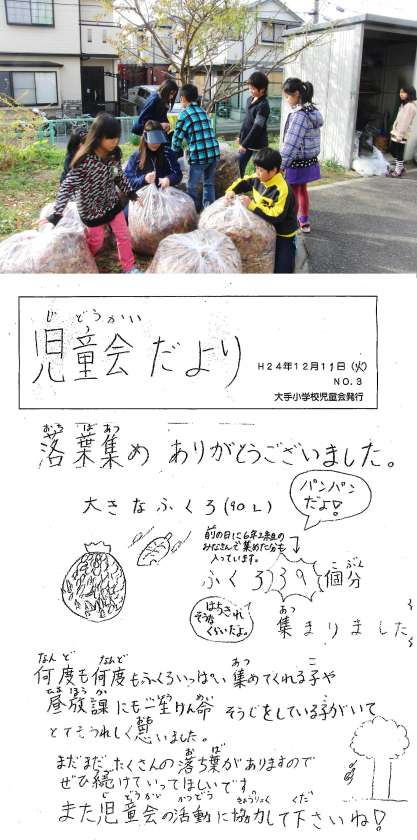 児童会だより
じどうかい
H24年12月11日(火)
NO.3
大手小学校児童会発行
おち ば あつ
落葉集め ありがとうございました。
大きなふくろ(90L)
パンパンだよ!
前の日に6年2組の
みなさんで集めた分も
入っています。
こ ぶん
ふくろ39個分
はちきれ
そうな
くらいだよ。
あつ
集まりました
なんど なんど あつ こ
何度も何度もふくろいっぱい集めてくれる子や
ひる ほう か めい
昼放課にも一生けん命 そうじをしている子がいて
とてもうれしく思いました。
お ば
まだまだ、たくさんの落ち葉がありますので
ぜひ続けていってほしいです。
じ どうかい かつどう きょうりょく くだ
また児童会の活動に協力して下さいね!